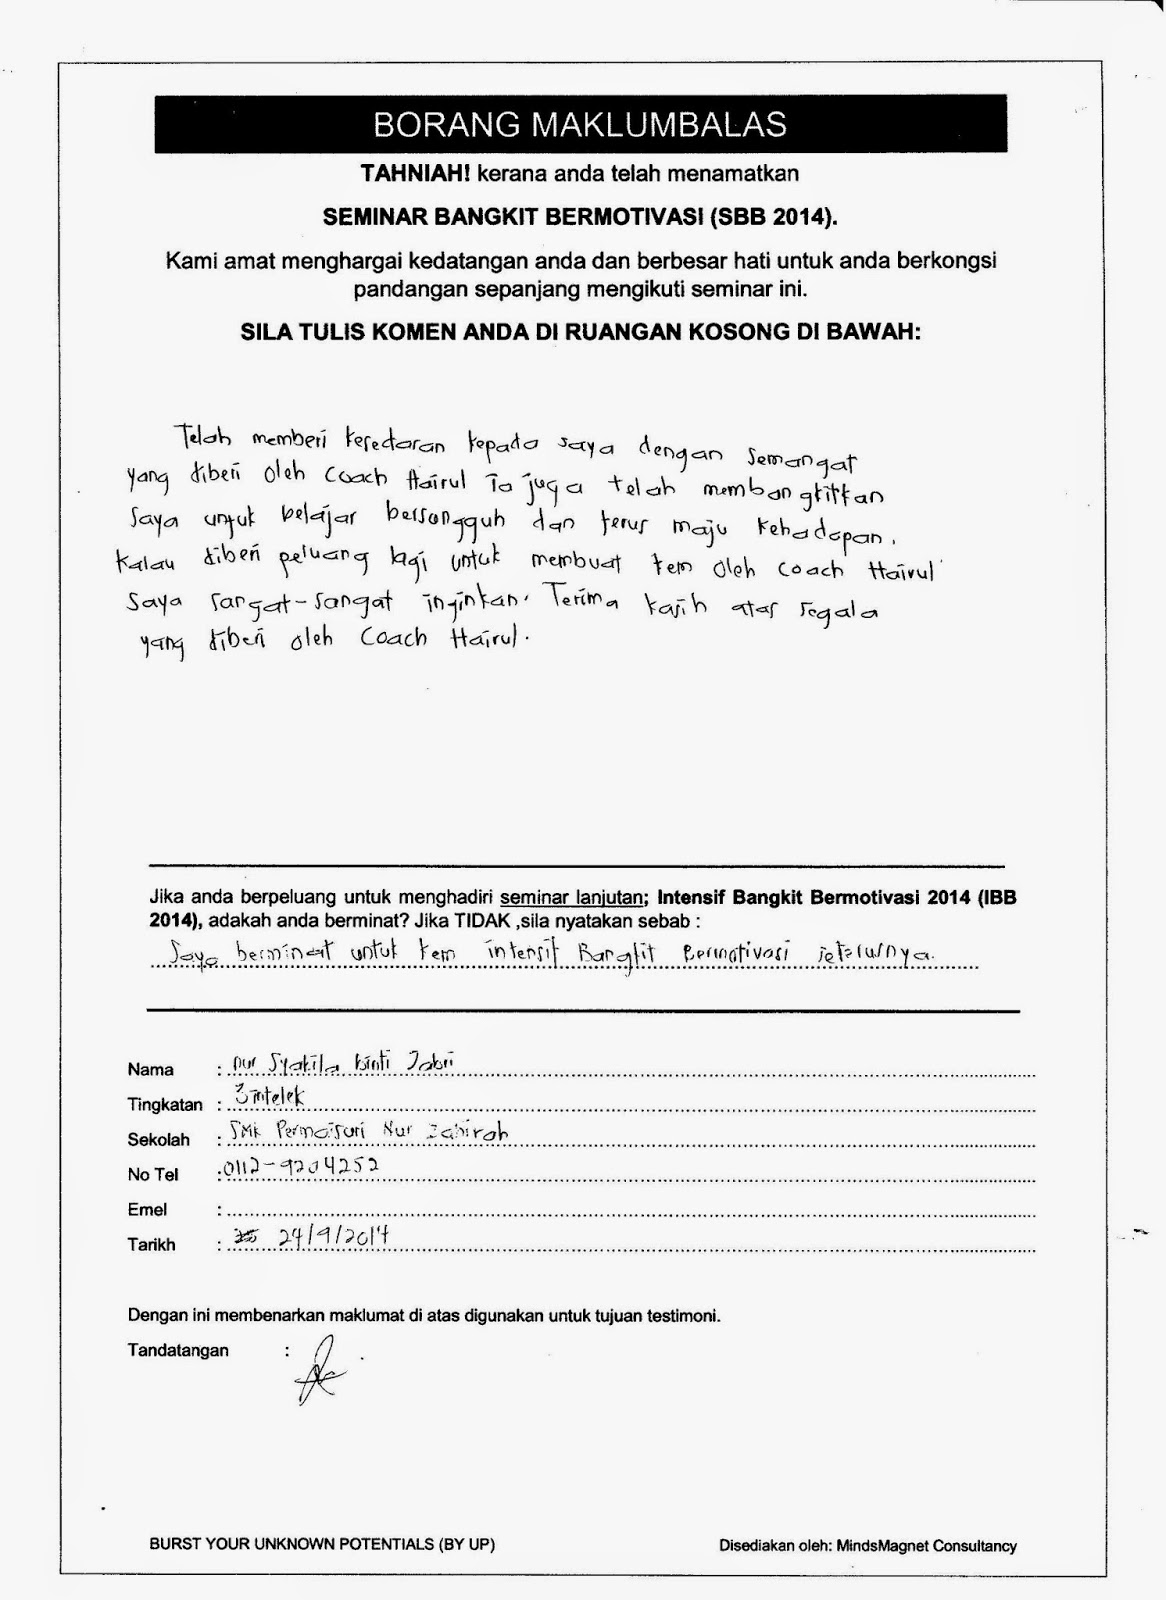 BORANG MAKLUMBALAS
TAHNIAH! kerana anda telah menamatkan
SEMINAR BANGKIT BERMOTIVASI (SBB 2014).
Kami amat menghargai kedatangan anda dan berbesar hati untuk anda berkongsi
pandangan sepanjang mengikuti seminar ini.
SILA TULIS KOMEN ANDA DI RUANGAN KOSONG DI BAWAH:
Telah memberi kesedaran kepada saya dengan semangat
yang diberi oleh coach Hairul Ia juga telah membangkitkan
saya untuk belajar bersungguh dan terus maju kehadapan.
Kalau diberi peluang lagi untuk membuat kem oleh coach Hairul
saya sangat-sangat inginkan. Terima kasih atas segala
yang diberi oleh Coach Hairul.
Jika anda berpeluang untuk menghadiri seminar lanjutan; Intensif Bangkit Bermotivasi 2014 (IBB
2014), adakah anda berminat? Jika TIDAK ,sila nyatakan sebab :
Saya berminat untuk kem intensif Bangkit Bermotivasi seterusnya.
Nama : Nur Syakila binti Jabri
Tingkatan : 3 intelek
Sekolah : SMK Permaisuri Nur Zahirah
No Tel : 0112-9204252
Emel :
Tarikh : 24/9/2014
Dengan ini membenarkan maklumat di atas digunakan untuk tujuan testimoni.
Tandatangan :
BURST YOUR UNKNOWN POTENTIALS (BY UP) Disediakan oleh: MindsMagnet Consultancy